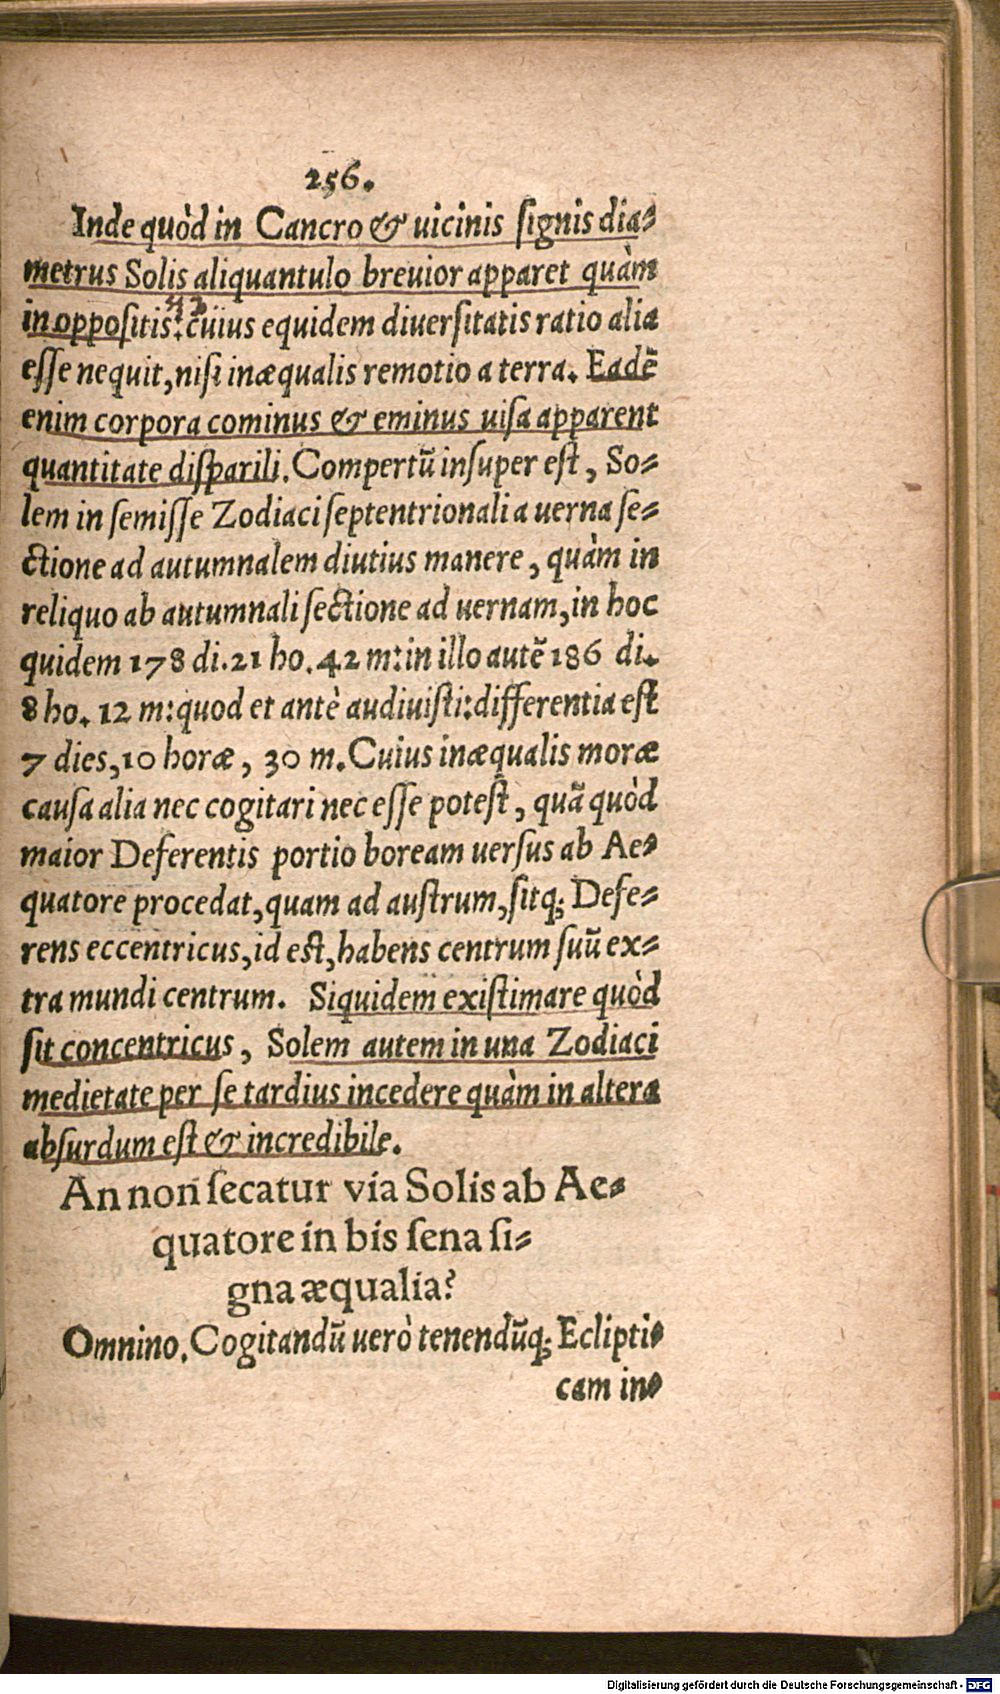 256.
Inde quòd in Cancro & uicinis signis dia⸗
metrus Solis aliquantulo breuior apparet quàm
in oppositis: cuius equidem diuersitatis ratio alia
esse nequit, nisi inæqualis remotio a terra. Eadẽ
enim corpora cominus & eminus uisa apparent
quantitate disparili. Compertũ insuper est, So⸗
lem in semisse Zodiaci septentrionali a uerna se⸗
ctione ad autumnalem diutius manere, quàm in
reliquo ab autumnali sectione ad uernam, in hoc
quidem 178 di. 21 ho. 42 m: in illo autẽ 186 di.
8 ho. 12 m: quod et antè audiuisti: differentia est
7 dies, 10 horæ, 30 m. Cuius inæqualis moræ
causa alia nec cogitari nec esse potest, quã quòd
maior Deferentis portio boream uersus ab Ae⸗
quatore procedat, quam ad austrum, sitq; Defe⸗
rens eccentricus, id est, habens centrum suũ ex⸗
tra mundi centrum. Siquidem existimare quòd
sit concentricus, Solem autem in una Zodiaci
medietate per se tardius incedere quàm in altera
absurdum est & incredibile.
An non secatur via Solis ab Ae⸗
quatore in bis sena si⸗
gna æqualia?
Omnino. Cogitandũ uerò tenendũq; Eclipti⸗
cam in⸗
Digitalisierung gefördert durch die Deutsche Forschungsgemeinschaft - DFG